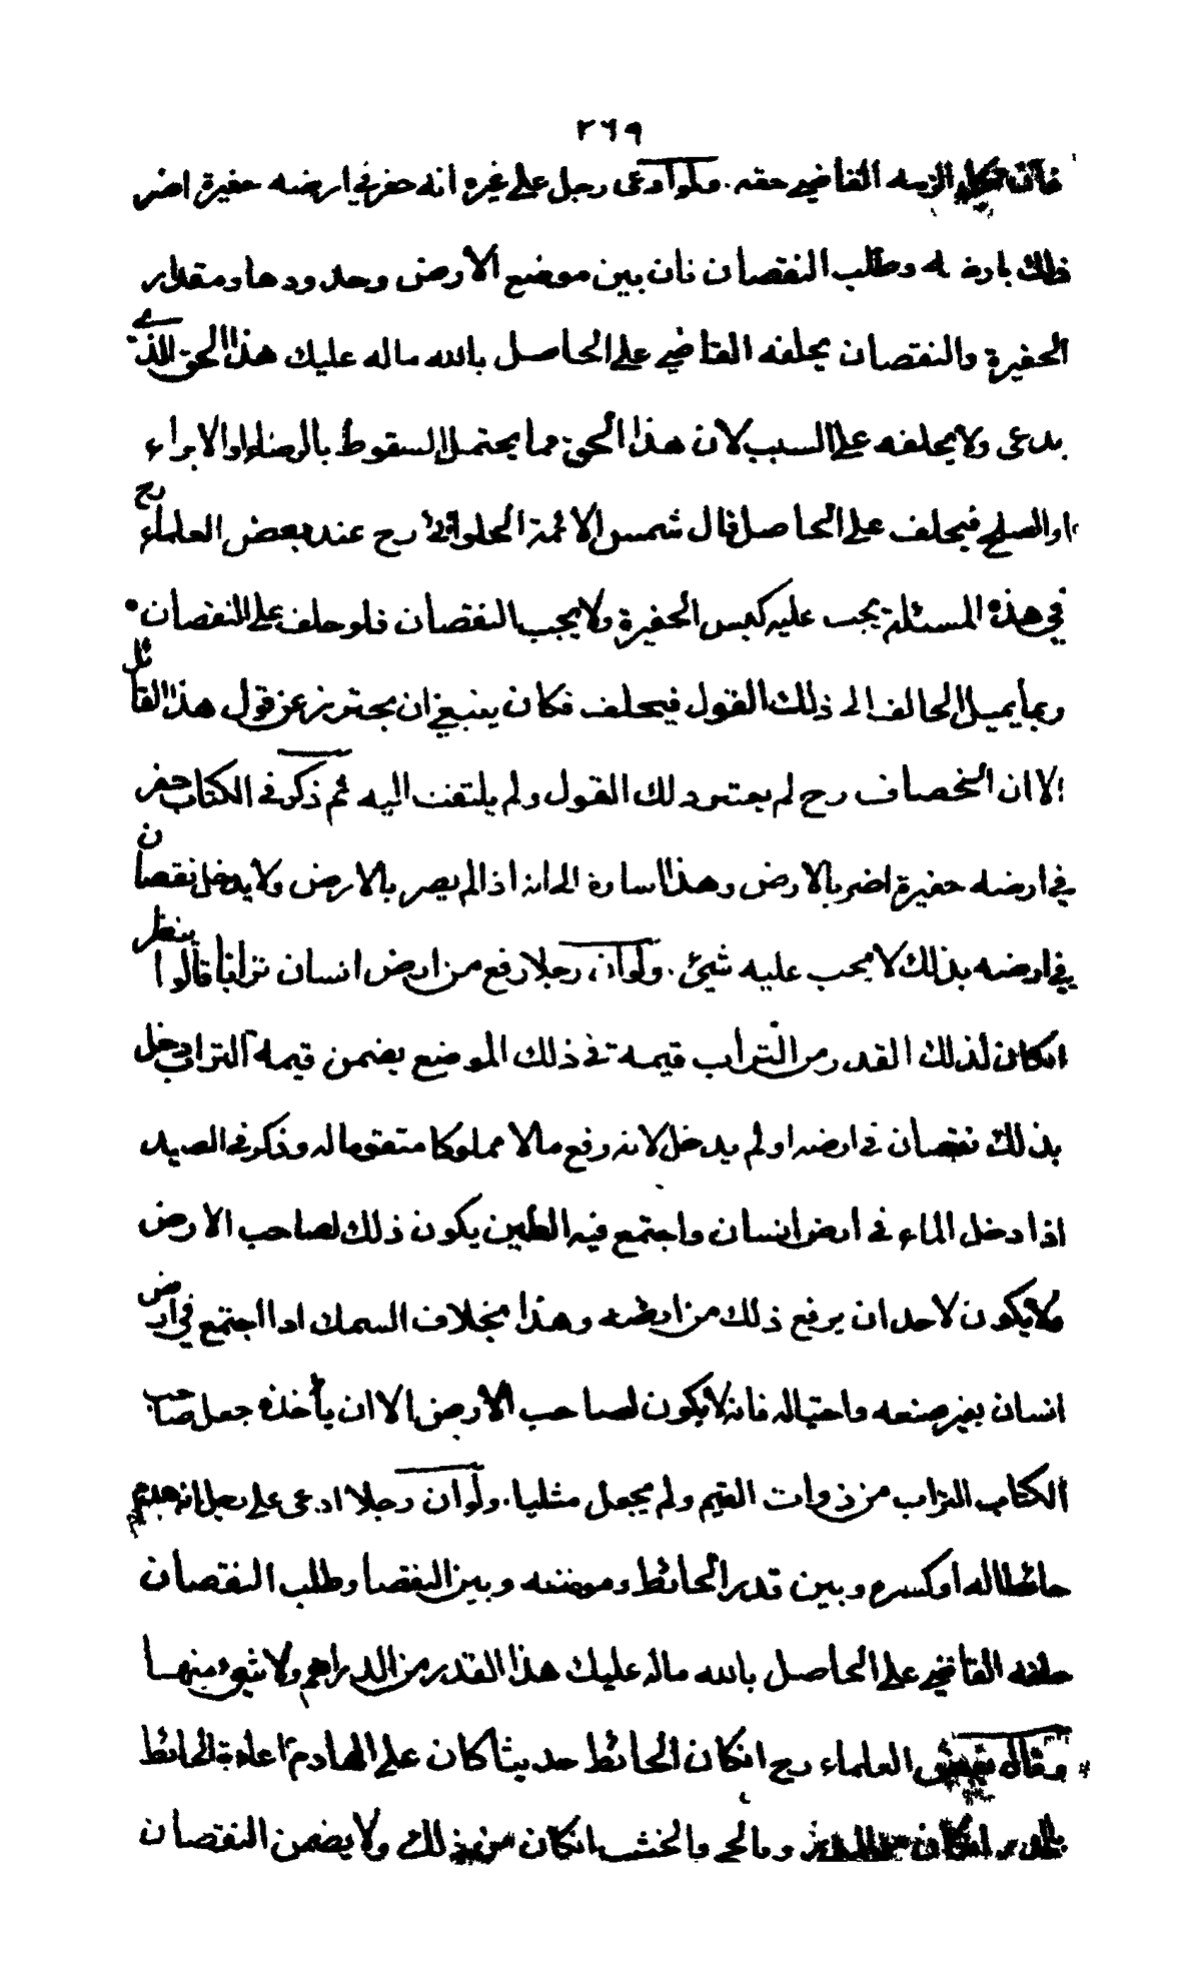 ٢٦٩
فان نكل الزمه القاضي حقه . ولو ادعى رجل على غيره انه حفر في ارضه حفيرة اضر
ذلك بارضه وطلب النقصان فان بين موضع الارض وحدودها ومقدار
الحفيرة والنقصان يحلفه القاضي على الحاصل بالله ماله عليك هذا الحق الذي
يدعى ولا يحلفه على السبب لان هذا الحق مما يحتمل السقوط بالرضاء او الابراء
او الصلح فيحلف على الحاصل قال شمس الائمة الحلوائي رح عند بعض العلماء رح
في هذه المسئلة يجب عليه كبس الحفيرة ولا يجب النقصان فلو حلف على النقصان
ربما يميل الحالف الى ذلك القول فيحلف فكان ينبغي ان يحترز عن قول هذا القائل
الا ان الخصاف رح لم يعتبر ذلك القول ولم يلتفت اليه ثم ذكر في الكتاب حفر
في ارضه حفيرة اضر بالارض وهذا اشارة الى انه اذا لم يضر بالارض ولا يدخل نقصان
في ارضه بذلك لا يجب عليه شيئ . ولو ان رجلا رفع من ارض انسان ترابا قالوا ينظر
انكان لذلك القدر من التراب قيمة في ذلك الموضع يضمن قيمة التراب دخل
بذلك نقصان في ارضه او لم يدخل لانه رفع مالا مملوكا متقوما له وذكر في الصيد
اذا دخل الماء في ارض انسان واجتمع فيه الطين يكون ذلك لصاحب الارض
ولا يكون لاحد ان يرفع ذلك من ارضه وهذا بخلاف السمك اذا اجتمع في ارض
انسان بغير صنعه واحتياله فانه لا يكون لصاحب الارض الا ان يأخذه جعل صاحب
الكتاب التراب من ذوات القيم ولم يجعل مثليا . ولو ان رجلا ادعى على رجل انه هدم
حائطا له او كسره وبين قدر الحائط وموضعه وبين النقصا وطلب النقصان
حلفه القاضي على الحاصل بالله ماله عليك هذا القدر من الدراهم ولا شيئ منها
وقال بعض العلماء رح انكان الحائط حديثا كان على الهادم اعادة الحائط
وبالجص والخشب انكان من ذلك ولا يضمن النقصان